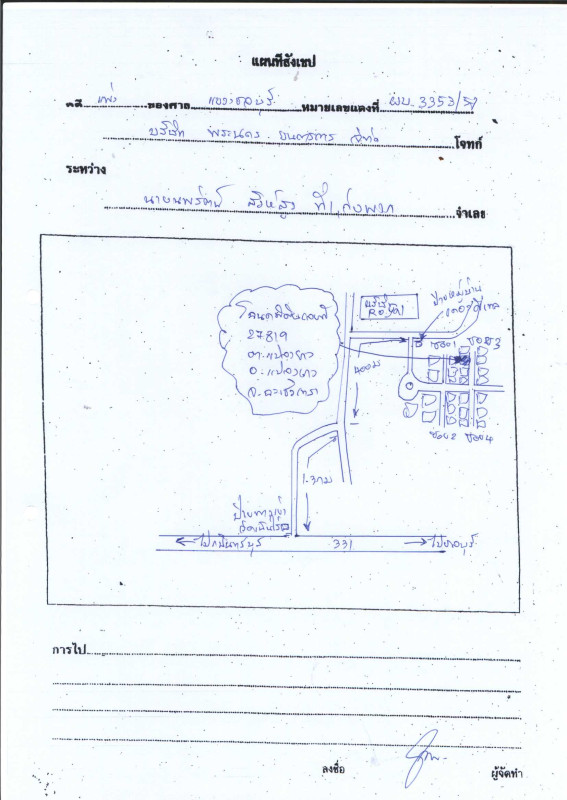 แผนที่สังเขป
คดี แพ่ง ของศาล แขวงชลบุรี หมายเลขแดงที่ ผบ. 3353/51
บริษัท พระนคร ยนตรการ จำกัด โจทก์
ระหว่าง
จำเลย
โฉนดที่ดินเลขที่
27819
ต.แปลงยาว
อ.แปลงยาว
จ.ฉะเชิงเทรา
บริษัท
ROYAL
ป้ายหมู่บ้าน
ซอย1
ซอย3
400ม
ซอย2
ซอย4
1.3กม
ป้ายทางเข้า
ไปกบินทร์บุรี
331
ไปชลบุรี
การไป
ลงชื่อ ผู้จัดทำ